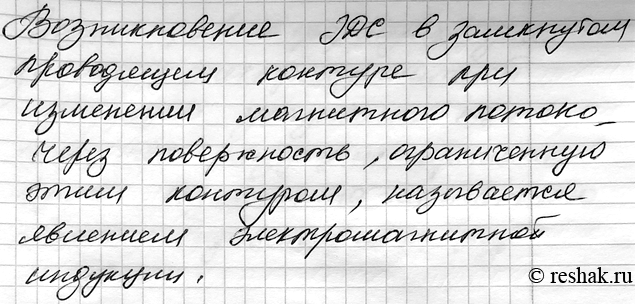 Возникновение ЭДС в замкнутом
проводящем контуре при
изменении магнитного потока
через поверхность, ограниченную
этим контуром, называется
явлением электромагнитной
индукции.
© reshak.ru